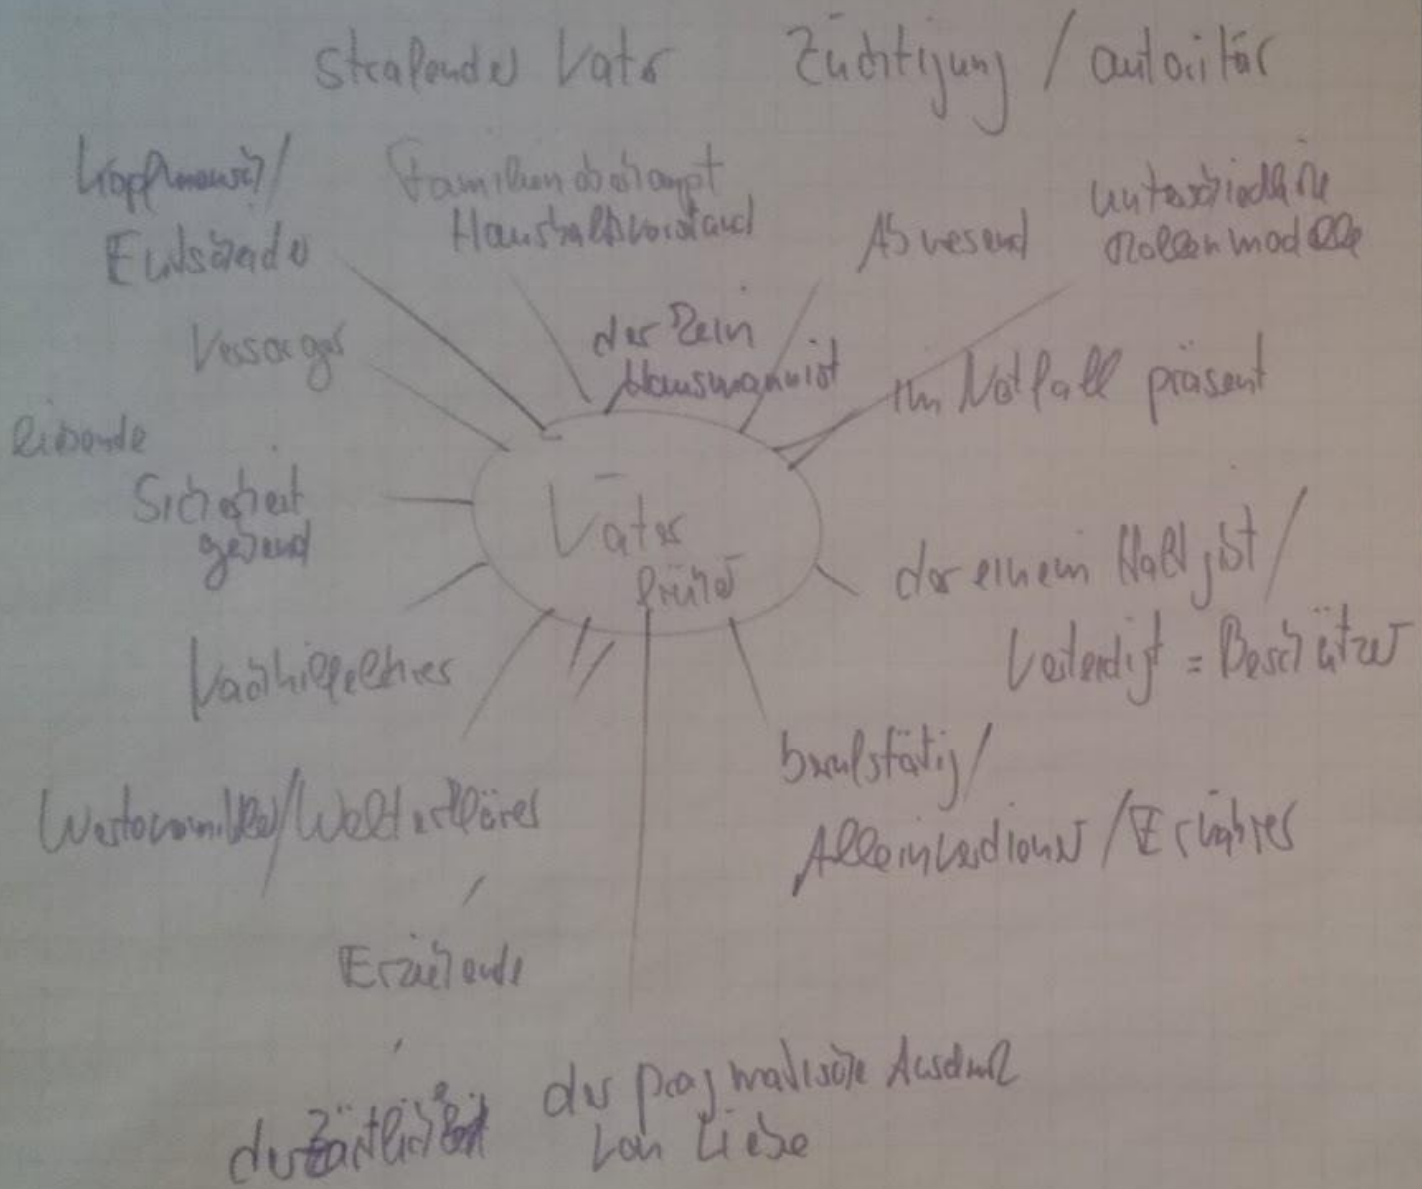 strafende Vater Züchtigung / autoritär
Kopfmensch/
Entscheider
Familienoberhaupt
Haushaltsvorstand
Abwesend
unterschiedliche
Rollenmodelle
Versorger
der kein
Hausmann ist
im Notfall präsent
liebende
Sicherheit
gebend
Väter
früher
der einem Halt gibt /
Verteidigt = Beschützer
Nachhilfelehrer
berufstätig /
Alleinverdiener / Ernährer
Wertevermittler/Welterklärer
Erziehende
der pragmatische Ausdruck
von Liebe
der zärtlich